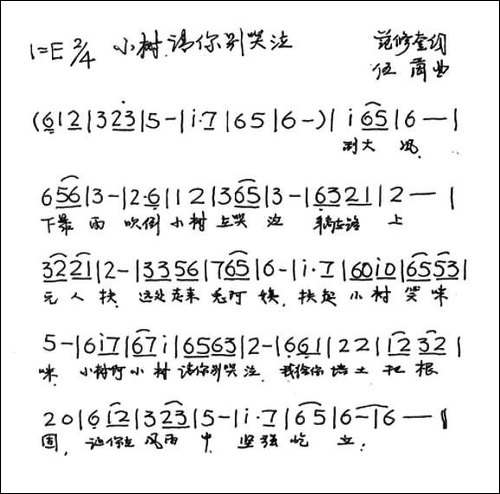 1=E 2/4 小树请你别哭泣
范修奎词
伍 曲
(6 1 2 | 3 2 3 | 5 - | i·7 | 6 5 | 6 -) | i 6 5 | 6 — |
刮大 风
6 5 6 | 3 - | 2·6 | 1 2 | 3 6 5 | 3 - | 6 3 2 1 | 2 — |
下暴 雨 吹倒 小树 在哭 泣 躺在路 上
3 2 2 1 | 2 - | 3 3 5 6 | 7 6 5 | 6 - | i·7 | 6 0 i 0 | 6 5 5 3 |
无 人 扶, 远处走来 老阿 姨, 扶起 小 树 笑 咪
5 - | 6 i 7 | 6 7 i | 6 5 6 3 | 2 - | 6 6 1 | 2 2 | 1 2 3 2 |
咪 小树啊小 树 请你别哭 泣 我给你 培 土 把 根
2 0 | 6 1 2 | 3 2 3 | 5 - | i·7 | 6 5 | 6 - | 6 — |
固, 让你在 风雨 中 坚强 屹 立.